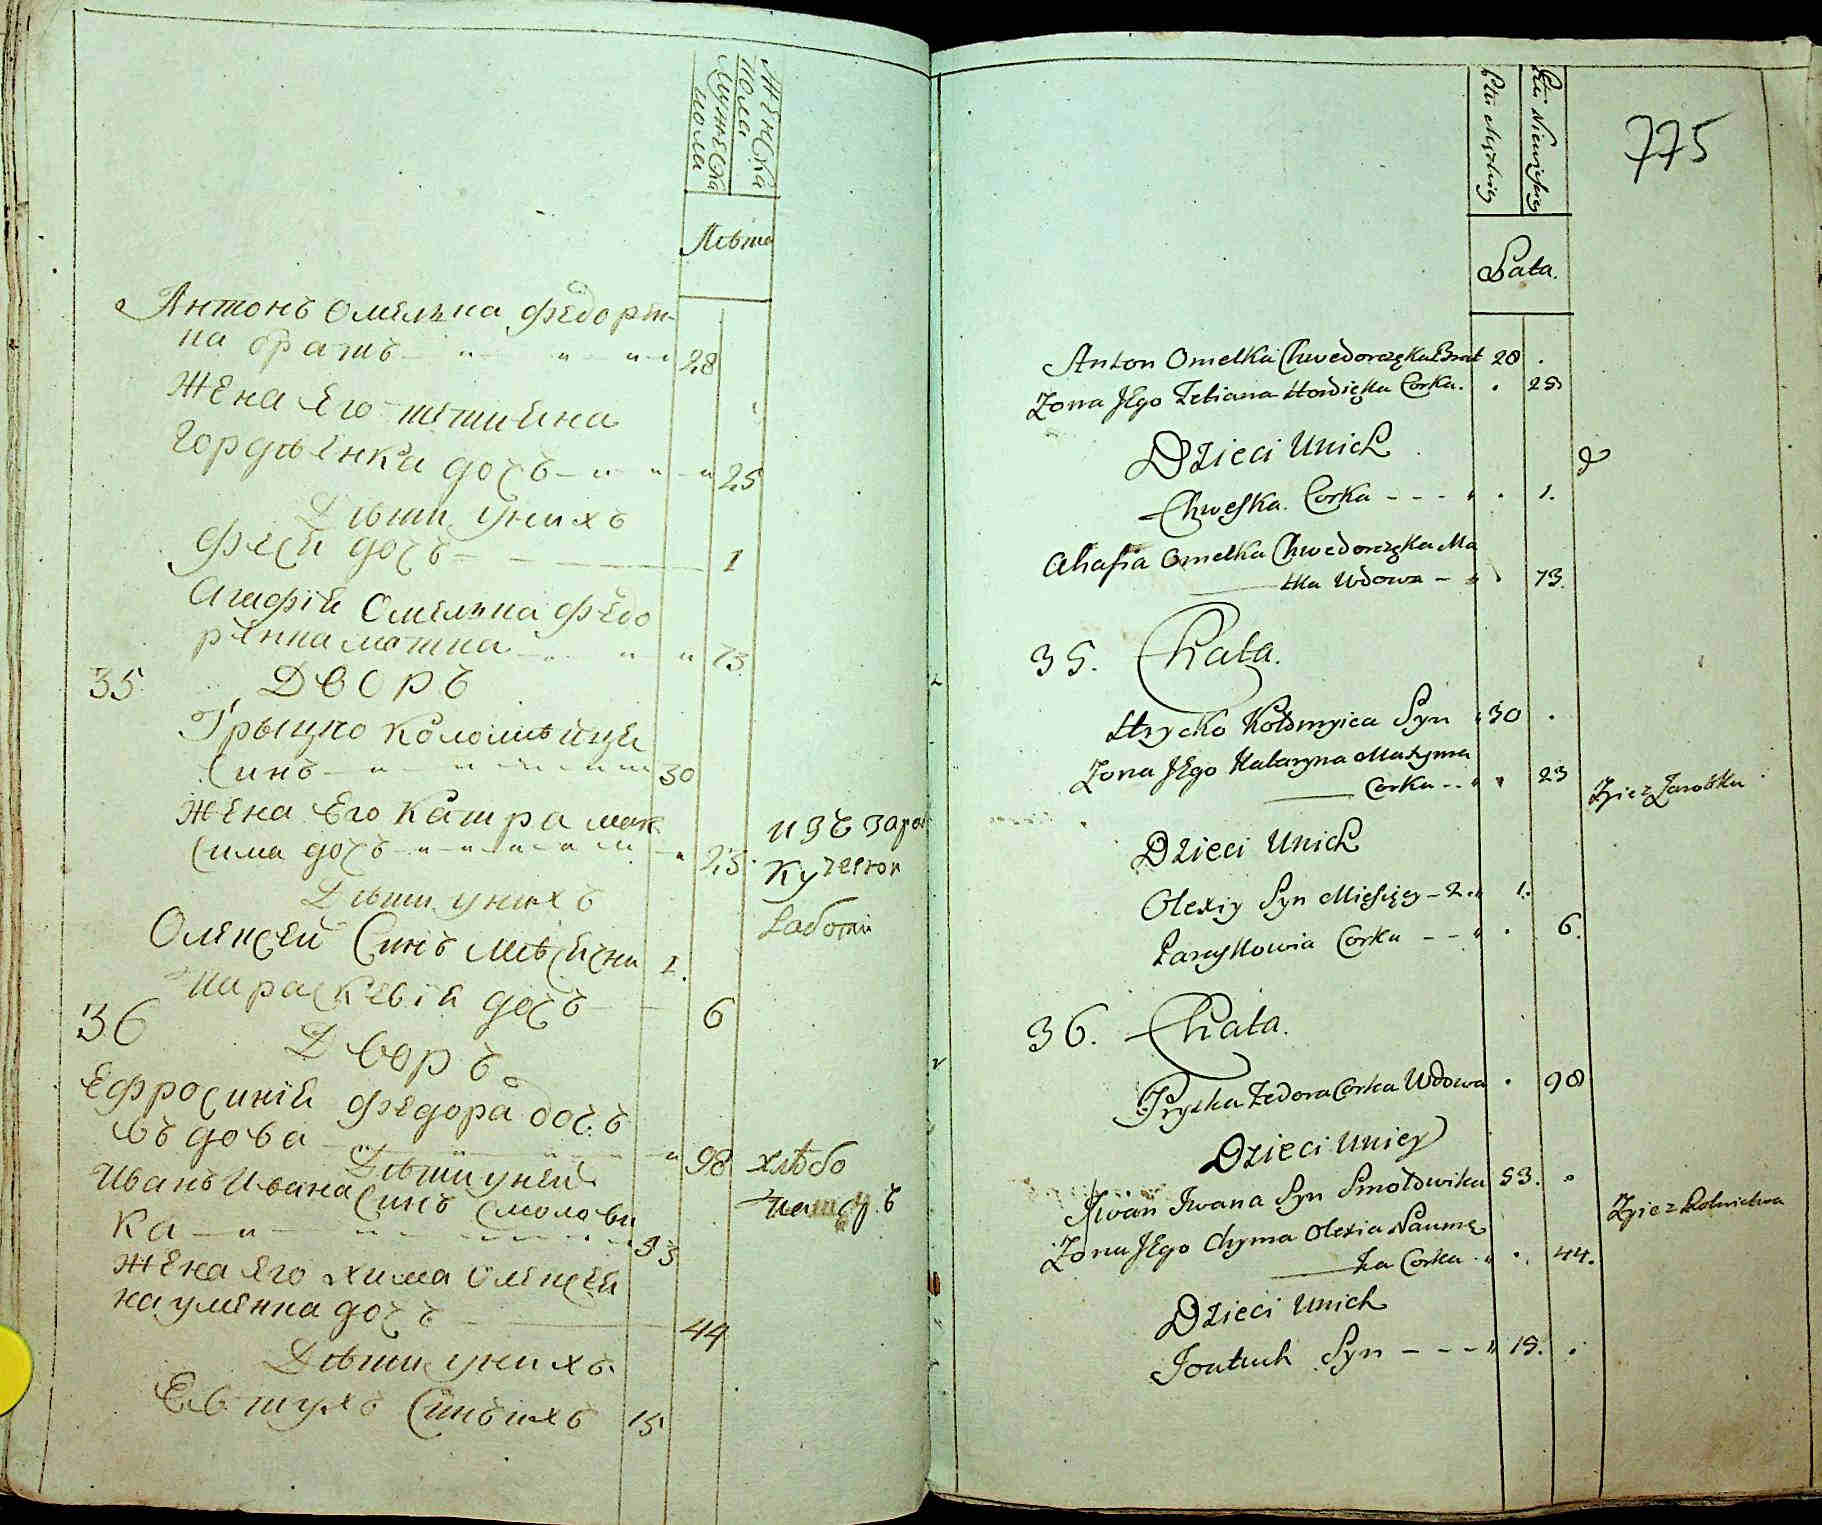 Женска
пола
Мужеска
пола
Лѣта
Антонъ Омелька Федорен-
ка братъ 28
Жена Его Тетиѧна
Гордѣѣнка дочъ 25
Дѣти унихъ
Феся дочъ 1
Агафія Омелька Федо
ренка матка 73
35 Дворъ
Грыцко Коломѣйца
Синъ 30
Жена Его Катра Мак
сима дочъ 25
изъ зара
Дѣти унихъ
Олексей Синъ 1.
Параскевія дочъ 6
36 Дворъ
Ефросинія Федора дочъ
въдова 98 хлѣбо
Дѣти уней
Иванъ Ивана Синъ Смолови
ка 53
Жена Его Хима Олексея
Науменка дочъ 44
Дѣти унихъ
Евтухъ Синъ ихъ 15
775
Płci Niewieściey
Płci Męzkiey
Lata.
Anton Omelka Chwedorczęka Brat 28 .
Zona Jego Tetiana Hordięka Corka. . 25
Dzieci Unich
Chweska Corka - - - . 1.
Ahafia Omelka Chwedorczęka Ma
tka Wdowa - . 73.
35. Chata.
Hrycko Kołomyica Syn 30 .
Zona Jego Kataryna Maxyma
Corka - - . 23
Zyie z Zarobku
Dzieci Unich
Olexiy Syn Miesięcy - 2. 1.
Paraskowia Corka - - . 6.
36. Chata.
Pryska Fedora Corka Wdowa . 98
Dzieci Uniey
Iwan Iwana Syn Smołowika 53. .
Zona Jego Chyma Olexia Naumę
ka Corka . 44.
Zyie z Rolnictwa
Dzieci Unich
Joutuch Syn - - - 15. .